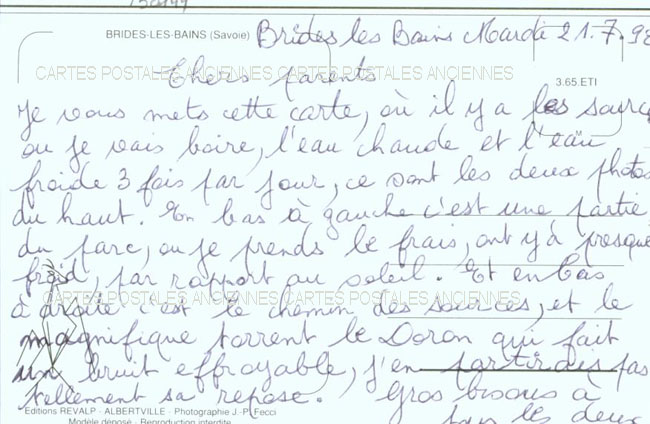 BRIDES-LES-BAINS (Savoie) Brides les Bains Mardi 21.7.98
CARTES POSTALES ANCIENNES CARTES POSTALES ANCIENNES
Chers parents
3.65.ETI
Je vous mets cette carte, où il y a les sourc
ou je vais boire, l'eau chaude et l'eau
froide 3 fois par jour, ce sont les deux photos
du haut. En bas à gauche c'est une partie
du parc, ou je prends le frais, ont y a presque
froid, par rapport au soleil. Et en bas
CARTES POSTALES ANCIENNES CARTES POSTALES ANCIENNES
à droite c'est le chemin des sources, et le
magnifique torrent le Doron qui fait
un bruit effroyable, j'en partirais pas
tellement sa repose. Gros bisous à
Editions REVALP - ALBERTVILLE - Photographie J.-P. Fecci
Modèle déposé - Reproduction interdite
les deux